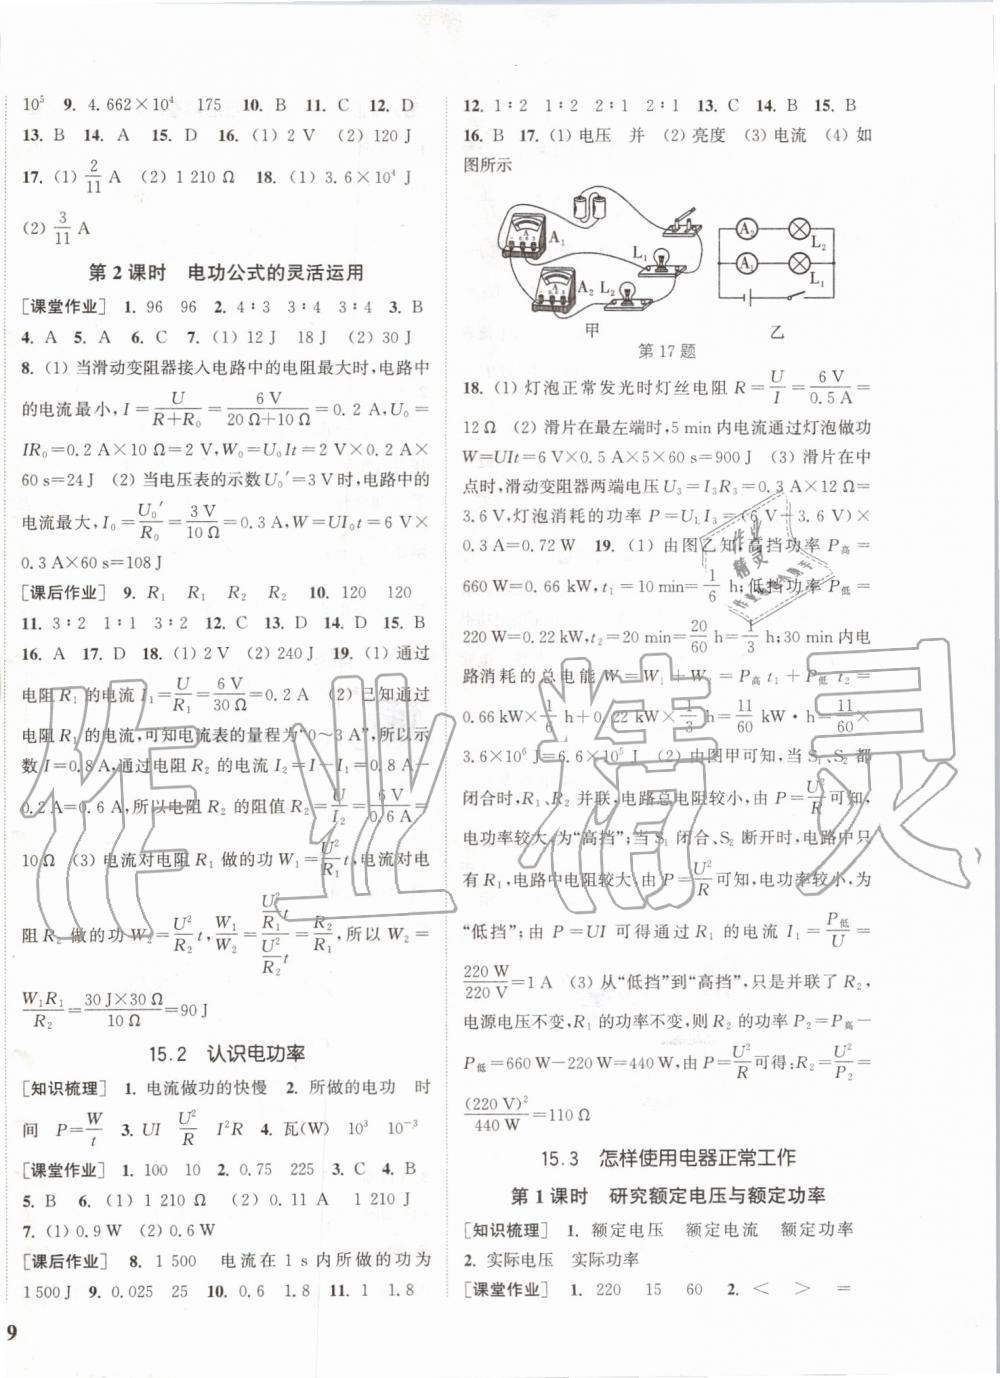 10⁵ 9. 4.662×10⁴ 175 10. B 11. C 12. D
13. B 14. A 15. D 16. (1) 2 V (2) 120 J
17. (1) 2/11 A (2) 1 210 Ω 18. (1) 3.6×10⁴ J
(2) 3/11 A
第2课时 电功公式的灵活运用
[课堂作业] 1. 96 96 2. 4∶3 3∶4 3∶4 3. B
4. A 5. A 6. C 7. (1) 12 J 18 J (2) 30 J
8. (1) 当滑动变阻器接入电路中的电阻最大时,电路中
的电流最小,I=U/(R+R₀)=6 V/(20 Ω+10 Ω)=0.2 A,U₀=
IR₀=0.2 A×10 Ω=2 V,W₀=U₀It=2 V×0.2 A×
60 s=24 J (2) 当电压表的示数U₀′=3 V时,电路中的
电流最大,I₀=U₀′/R₀=3 V/10 Ω=0.3 A,W=UI₀t=6 V×
0.3 A×60 s=108 J
[课后作业] 9. R₁ R₁ R₂ R₂ 10. 120 120
11. 3∶2 1∶1 3∶2 12. C 13. D 14. D 15. B
16. A 17. D 18. (1) 2 V (2) 240 J 19. (1) 通过
电阻R₁的电流I₁=U/R₁=6 V/30 Ω=0.2 A (2) 已知通过
电阻R₁的电流,可知电流表的量程为“0~3 A”,所以示
数I=0.8 A,通过电阻R₂的电流I₂=I-I₁=0.8 A-
0.2 A=0.6 A,所以电阻R₂的阻值R₂=U/I₂=6 V/0.6 A=
10 Ω (3) 电流对电阻R₁做的功W₁=U²/R₁t,电流对电
阻R₂做的功W₂=U²/R₂t,W₁/W₂=(U²/R₁t)/(U²/R₂t)=R₂/R₁,所以W₂=
W₁R₁/R₂=30 J×30 Ω/10 Ω=90 J
15.2 认识电功率
[知识梳理] 1. 电流做功的快慢 2. 所做的电功 时
间 P=W/t 3. UI U²/R I²R 4. 瓦(W) 10³ 10⁻³
[课堂作业] 1. 100 10 2. 0.75 225 3. C 4. B
5. B 6. (1) 1 210 Ω (2) 0.11 A 1 210 J
7. (1) 0.9 W (2) 0.6 W
[课后作业] 8. 1 500 电流在1 s内所做的功为
1 500 J 9. 0.025 25 10. 0.6 1.8 11. 1 1.8
9
12. 1∶2 1∶2 2∶1 2∶1 13. C 14. B 15. B
16. B 17. (1) 电压 并 (2) 亮度 (3) 电流 (4) 如
图所示
A
-0.6 3
A₁
L₁
A
-0.6 3
A₂ L₂
甲
A₂ L₂
A₁ L₁
乙
第17题
18. (1) 灯泡正常发光时灯丝电阻R=U/I=6 V/0.5 A=
12 Ω (2) 滑片在最左端时,5 min内电流通过灯泡做功
W=UIt=6 V×0.5 A×5×60 s=900 J (3) 滑片在中
点时,滑动变阻器两端电压U₃=I₃R₃=0.3 A×12 Ω=
3.6 V,灯泡消耗的功率P=U_L I₃=(6 V-3.6 V)×
0.3 A=0.72 W 19. (1) 由图乙知,高挡功率P高=
660 W=0.66 kW,t₁=10 min=1/6 h;低挡功率P低=
220 W=0.22 kW,t₂=20 min=20/60 h=1/3 h;30 min内电
路消耗的总电能W=W₁+W₂=P高t₁+P低t₂=
0.66 kW×1/6 h+0.22 kW×1/3 h=11/60 kW·h=11/60×
3.6×10⁶ J=6.6×10⁵ J (2) 由图甲可知,当S₁、S₂都
闭合时,R₁、R₂并联,电路总电阻较小,由P=U²/R可知,
电功率较大,为“高挡”;当S₁闭合、S₂断开时,电路中只
有R₁,电路中电阻较大,由P=U²/R可知,电功率较小,为
“低挡”;由P=UI可得通过R₁的电流I₁=P低/U=
220 W/220 V=1 A (3) 从“低挡”到“高挡”,只是并联了R₂,
电源电压不变,R₁的功率不变,则R₂的功率P₂=P高-
P低=660 W-220 W=440 W,由P=U²/R可得:R₂=U²/P₂=
(220 V)²/440 W=110 Ω
15.3 怎样使用电器正常工作
第1课时 研究额定电压与额定功率
[知识梳理] 1. 额定电压 额定电流 额定功率
2. 实际电压 实际功率
[课堂作业] 1. 220 15 60 2. < > =
作业精灵
作业
精灵